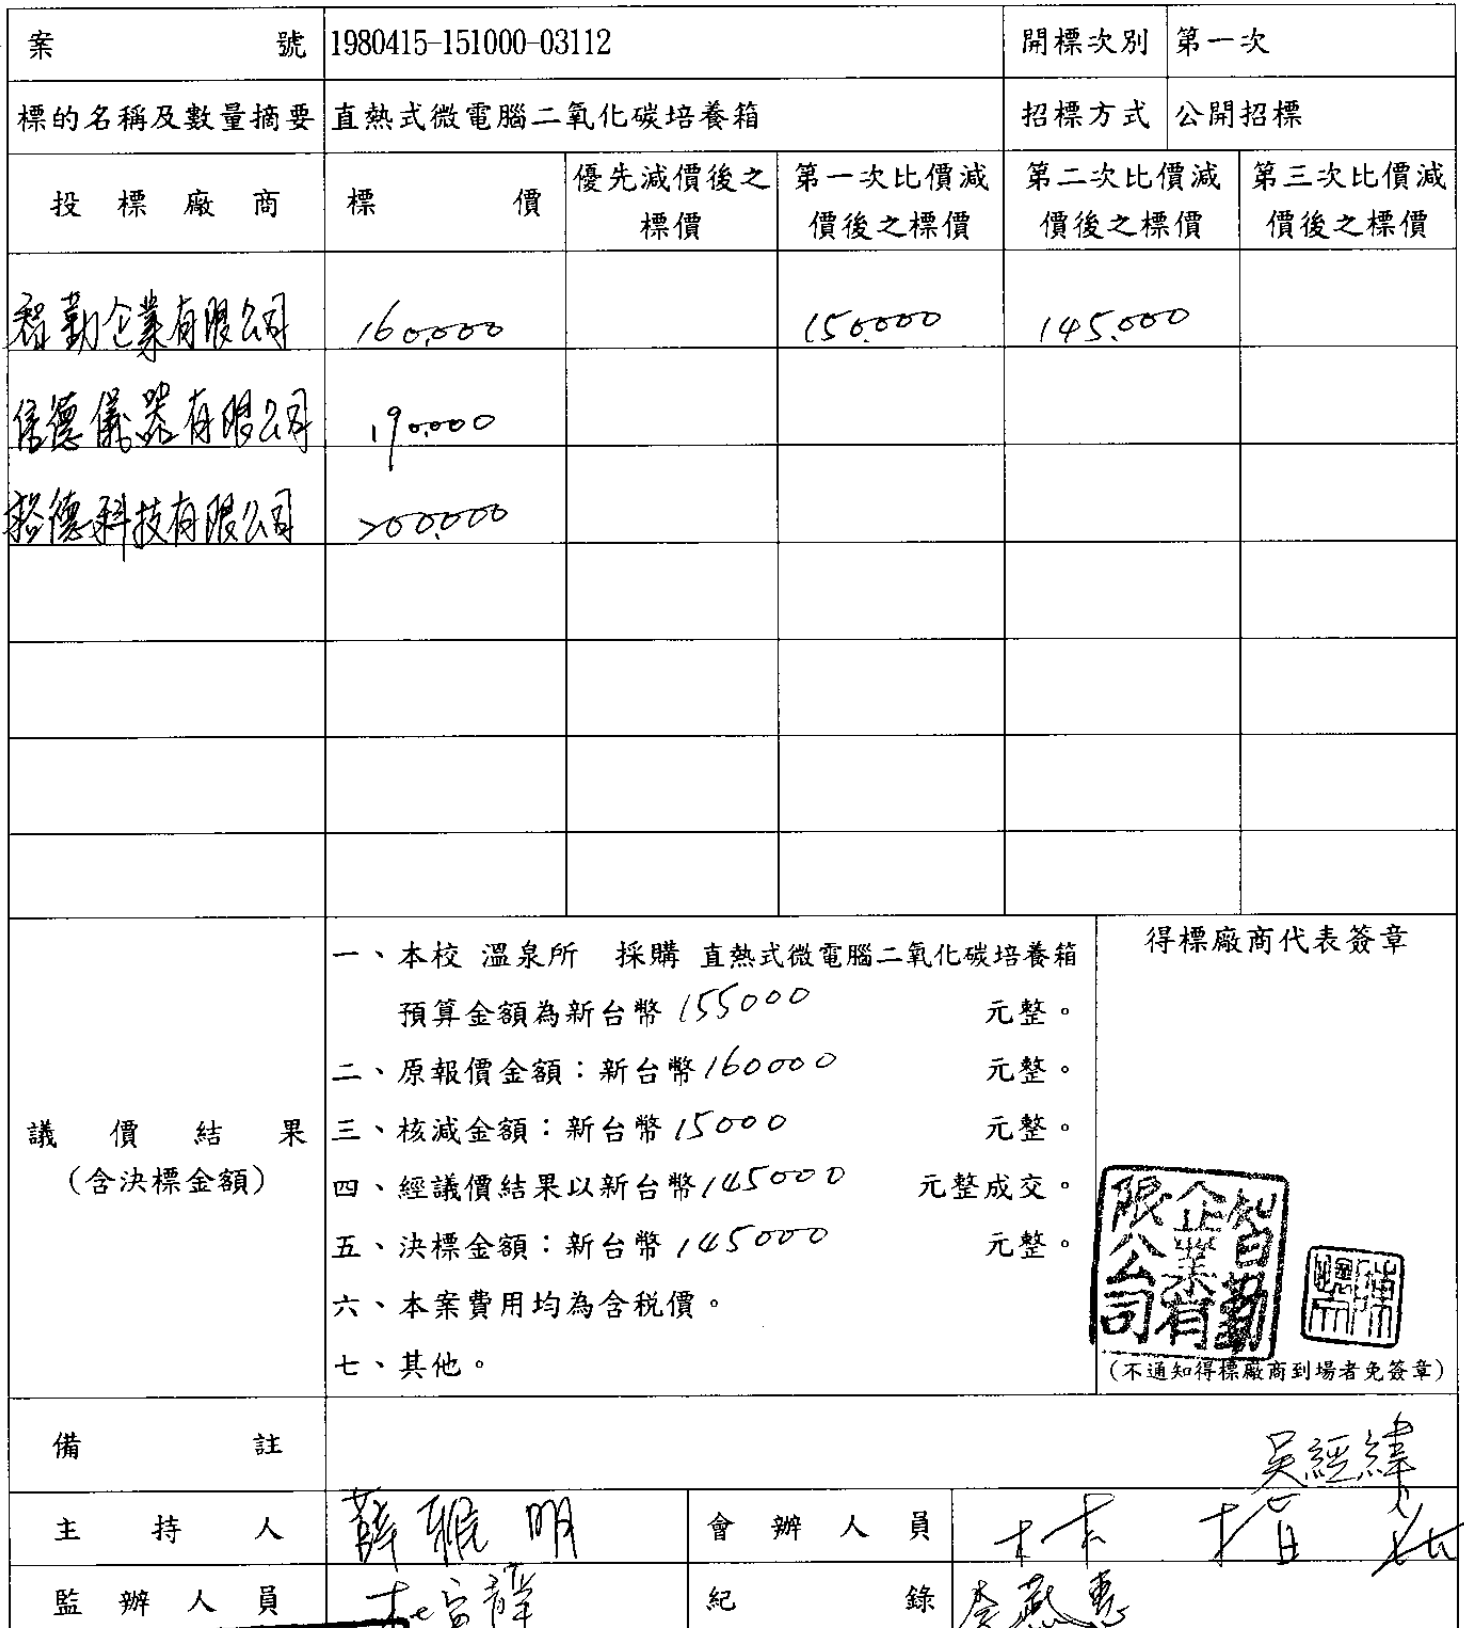 案 號 1980415-151000-03112 開標次別 第一次
標的名稱及數量摘要 直熱式微電腦二氧化碳培養箱 招標方式 公開招標
投標廠商 標 價 優先減價後之標價 第一次比價減價後之標價 第二次比價減價後之標價 第三次比價減價後之標價
智勤企業有限公司 160,000 150,000 145,000
信德儀器有限公司 190,000
德科技有限公司 200,000
議價結果
(含決標金額)
一、本校 溫泉所 採購 直熱式微電腦二氧化碳培養箱
預算金額為新台幣 155000 元整。
二、原報價金額：新台幣 160000 元整。
三、核減金額：新台幣 15000 元整。
四、經議價結果以新台幣 145000 元整成交。
五、決標金額：新台幣 145000 元整。
六、本案費用均為含稅價。
七、其他。
得標廠商代表簽章
智勤企業有限公司
(不通知得標廠商到場者免簽章)
備 註 吳經緯
主持人 薛雅明 會辦人員 林
監辦人員 紀 錄 李燕惠